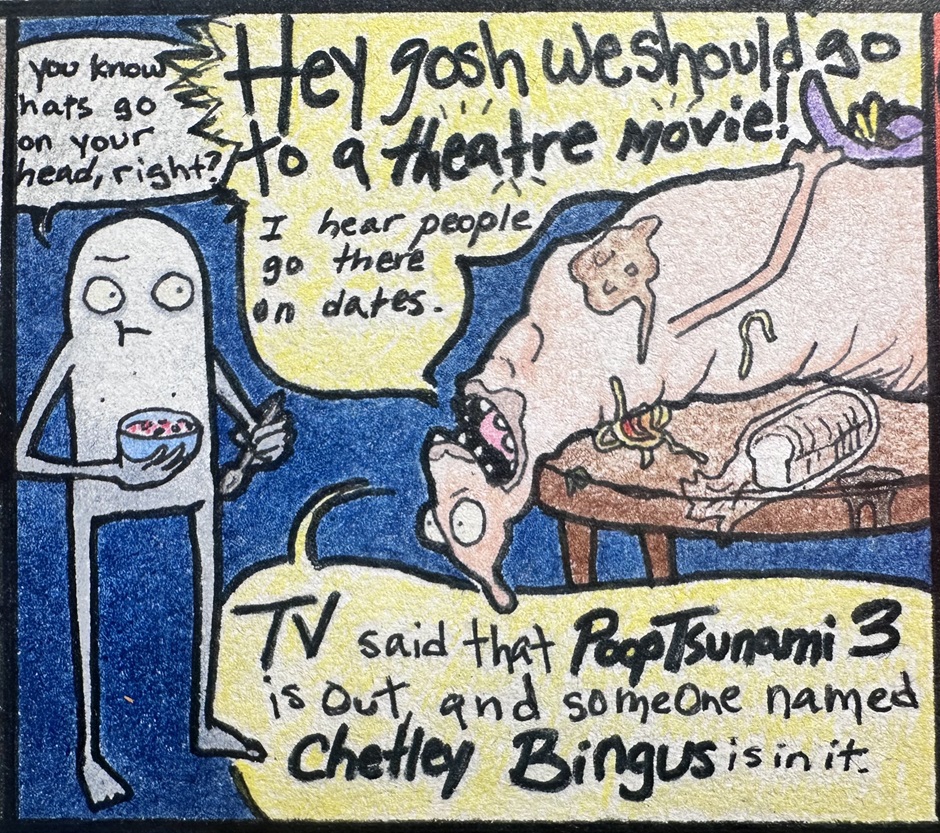 you know
hats go
on your
head, right?
Hey gosh we should go
to a theatre movie!
I hear people
go there
on dates.
TV said that PoopTsunami 3
is out, and someone named
Chetley Bingus is in it.